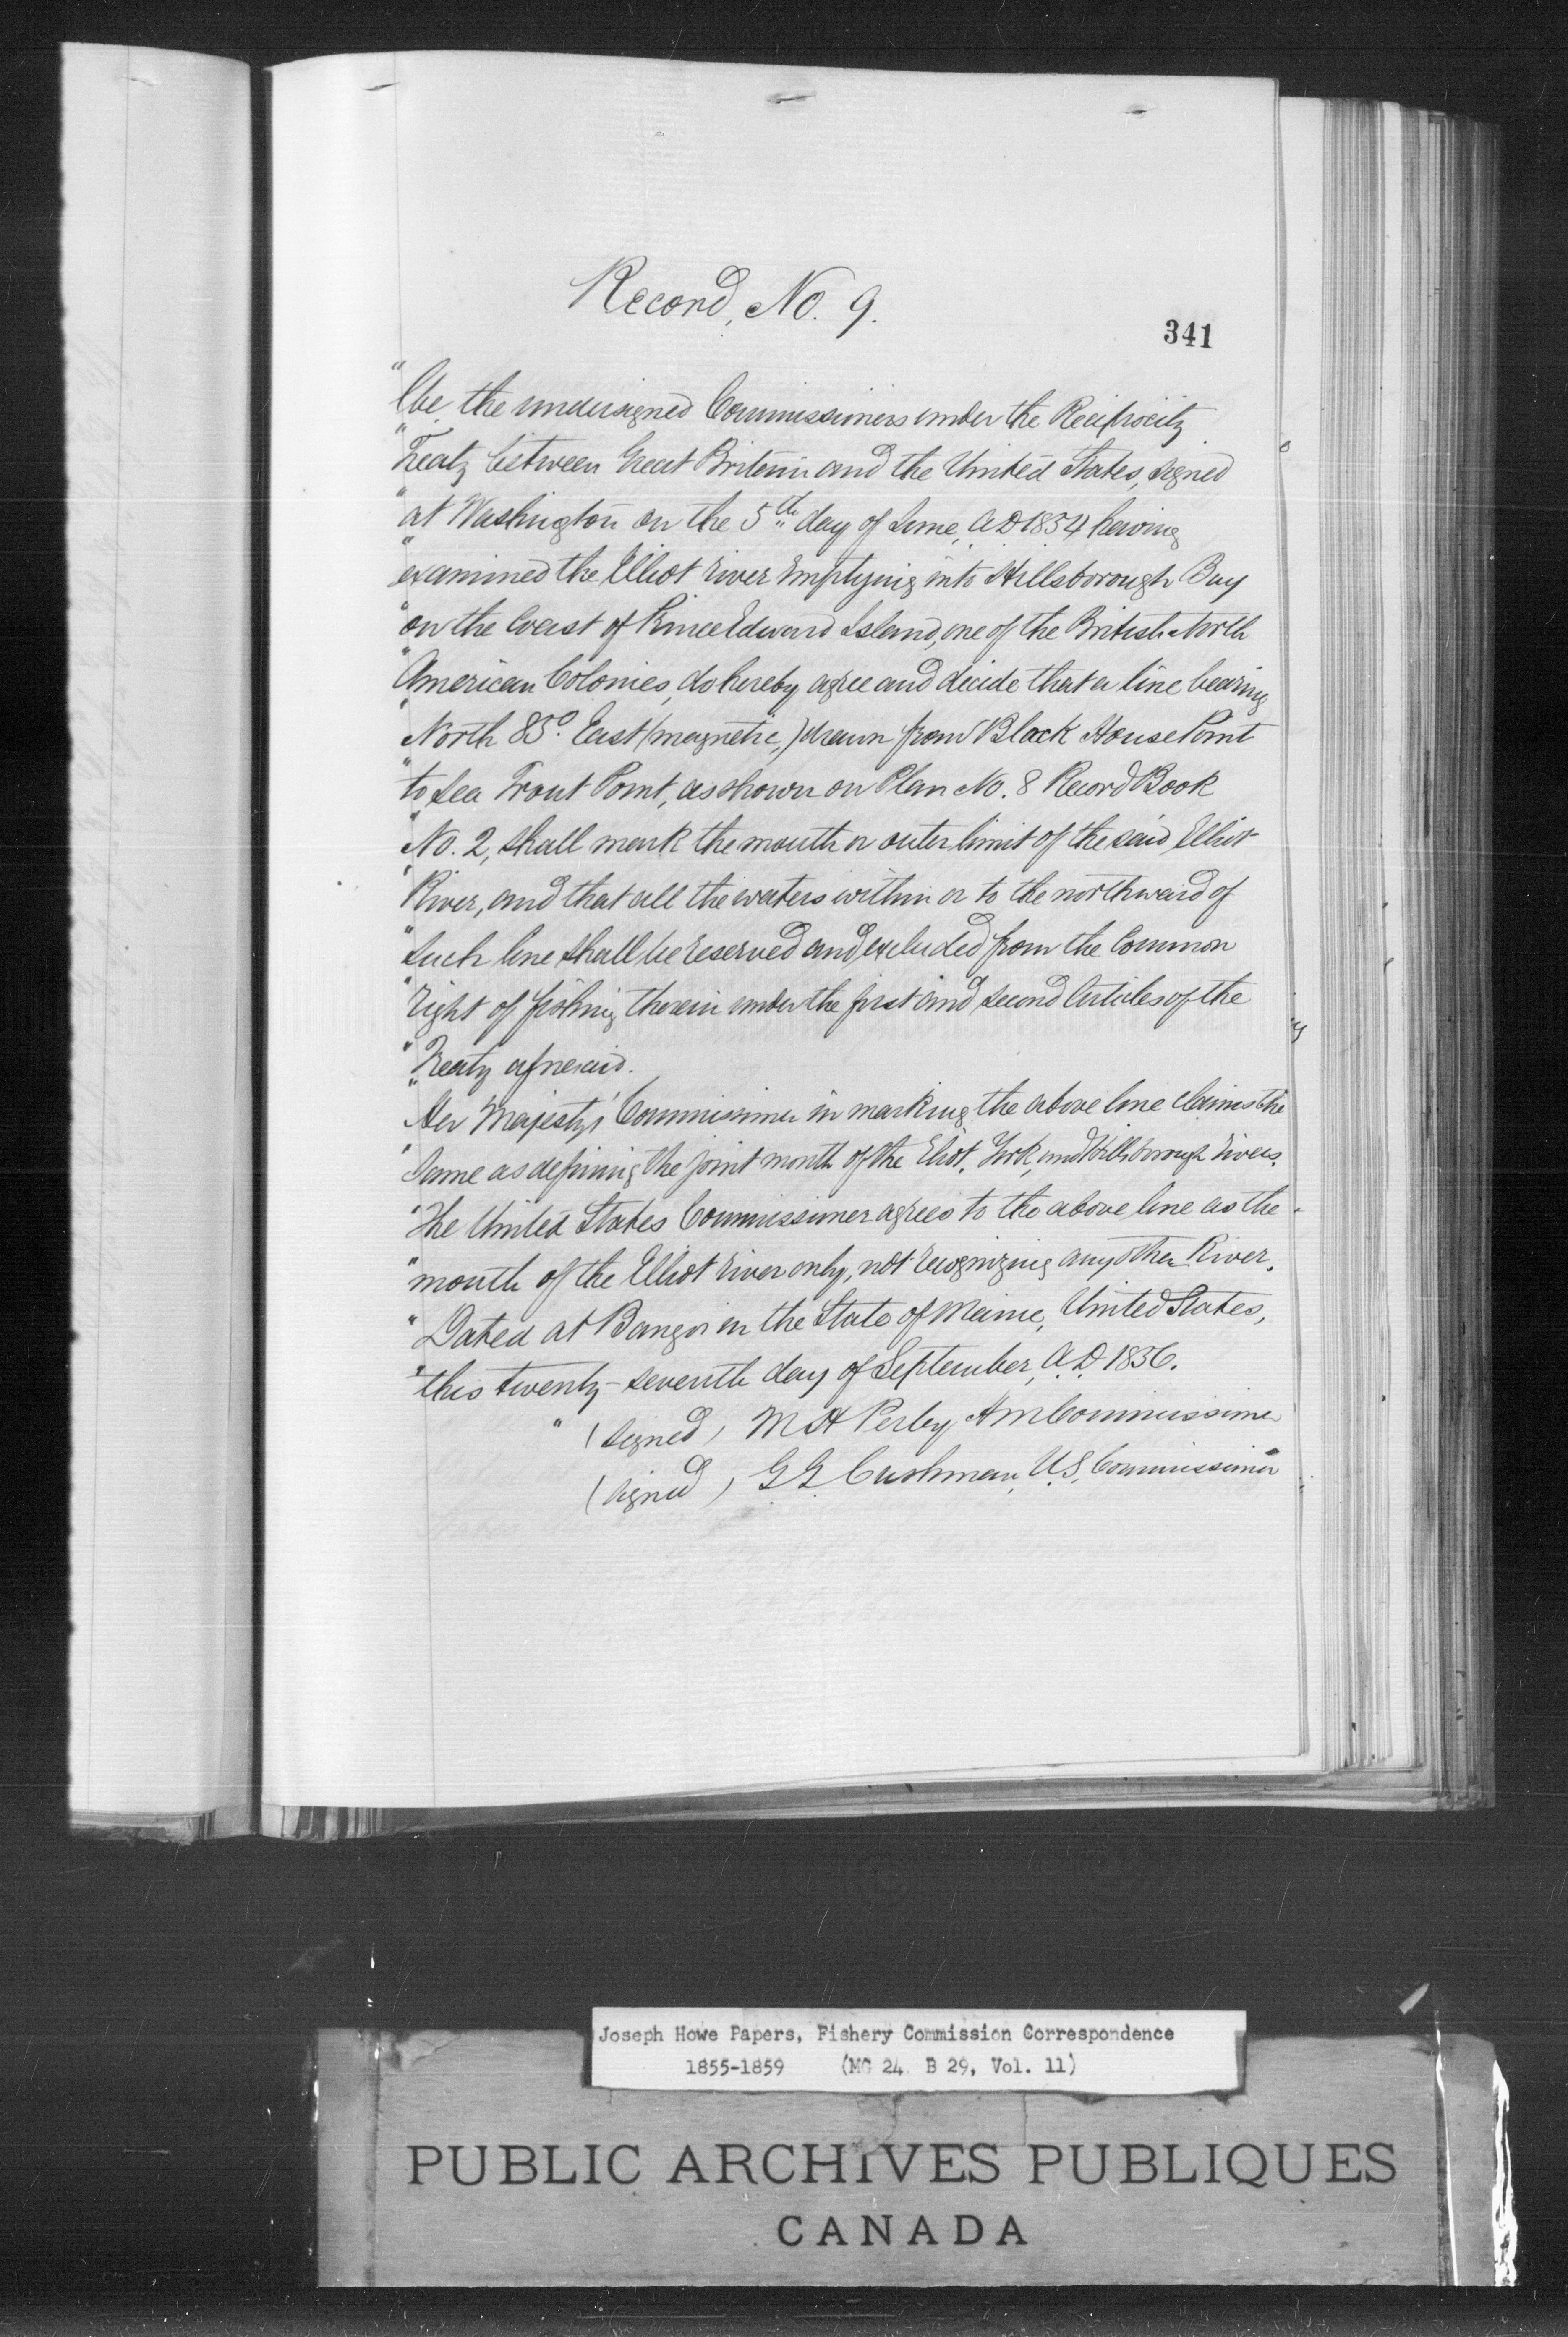 Record, No. 9.
341
"We the undersigned Commissioners under the Reciprocity
"Treaty between Great Britain and the United States, signed
"at Washington on the 5th day of June, A D 1854 having
"examined the Elliot River Emptying into Hillsborough Bay
"on the Coast of Prince Edward Island, one of the British North
"American Colonies, do hereby agree and decide that a line bearing
"North 85° East (magnetic,) drawn from Block House Point
"to Sea Trout Point, as shown on Plan No. 8 Record Book
"No. 2, shall mark the mouth or outer limit of the said Elliot
"River, and that all the waters within or to the northward of
"Such line shall be reserved and excluded from the Common
"right of fishing therein under the first and second Articles of the
"Treaty aforesaid.
"Her Majesty's Commissioner in marking the above line claims the
"Same as defining the joint mouth of the Eliot, York, and Hillsborough Rivers.
"The United States Commissioner agrees to the above line as the
"mouth of the Elliot River only, not recognizing any other River.
"Dated at Bangor in the State of Maine, United States,
"this twenty-seventh day of September, A.D. 1856.
" (signed) M H Perley H M Commissioner
(signed) G G Cushman, U.S. Commissioner
Joseph Howe Papers, Fishery Commission Correspondence
1855-1859 (MG 24 B 29, Vol. 11)
PUBLIC ARCHIVES PUBLIQUES
CANADA